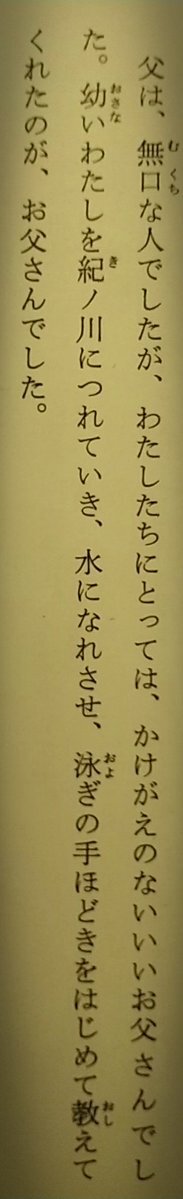 父は、無口な人でしたが、わたしたちにとっては、かけがえのないいいお父さんでし
た。幼いわたしを紀ノ川につれていき、水になれさせ、泳ぎの手ほどきをはじめて教えて
くれたのが、お父さんでした。